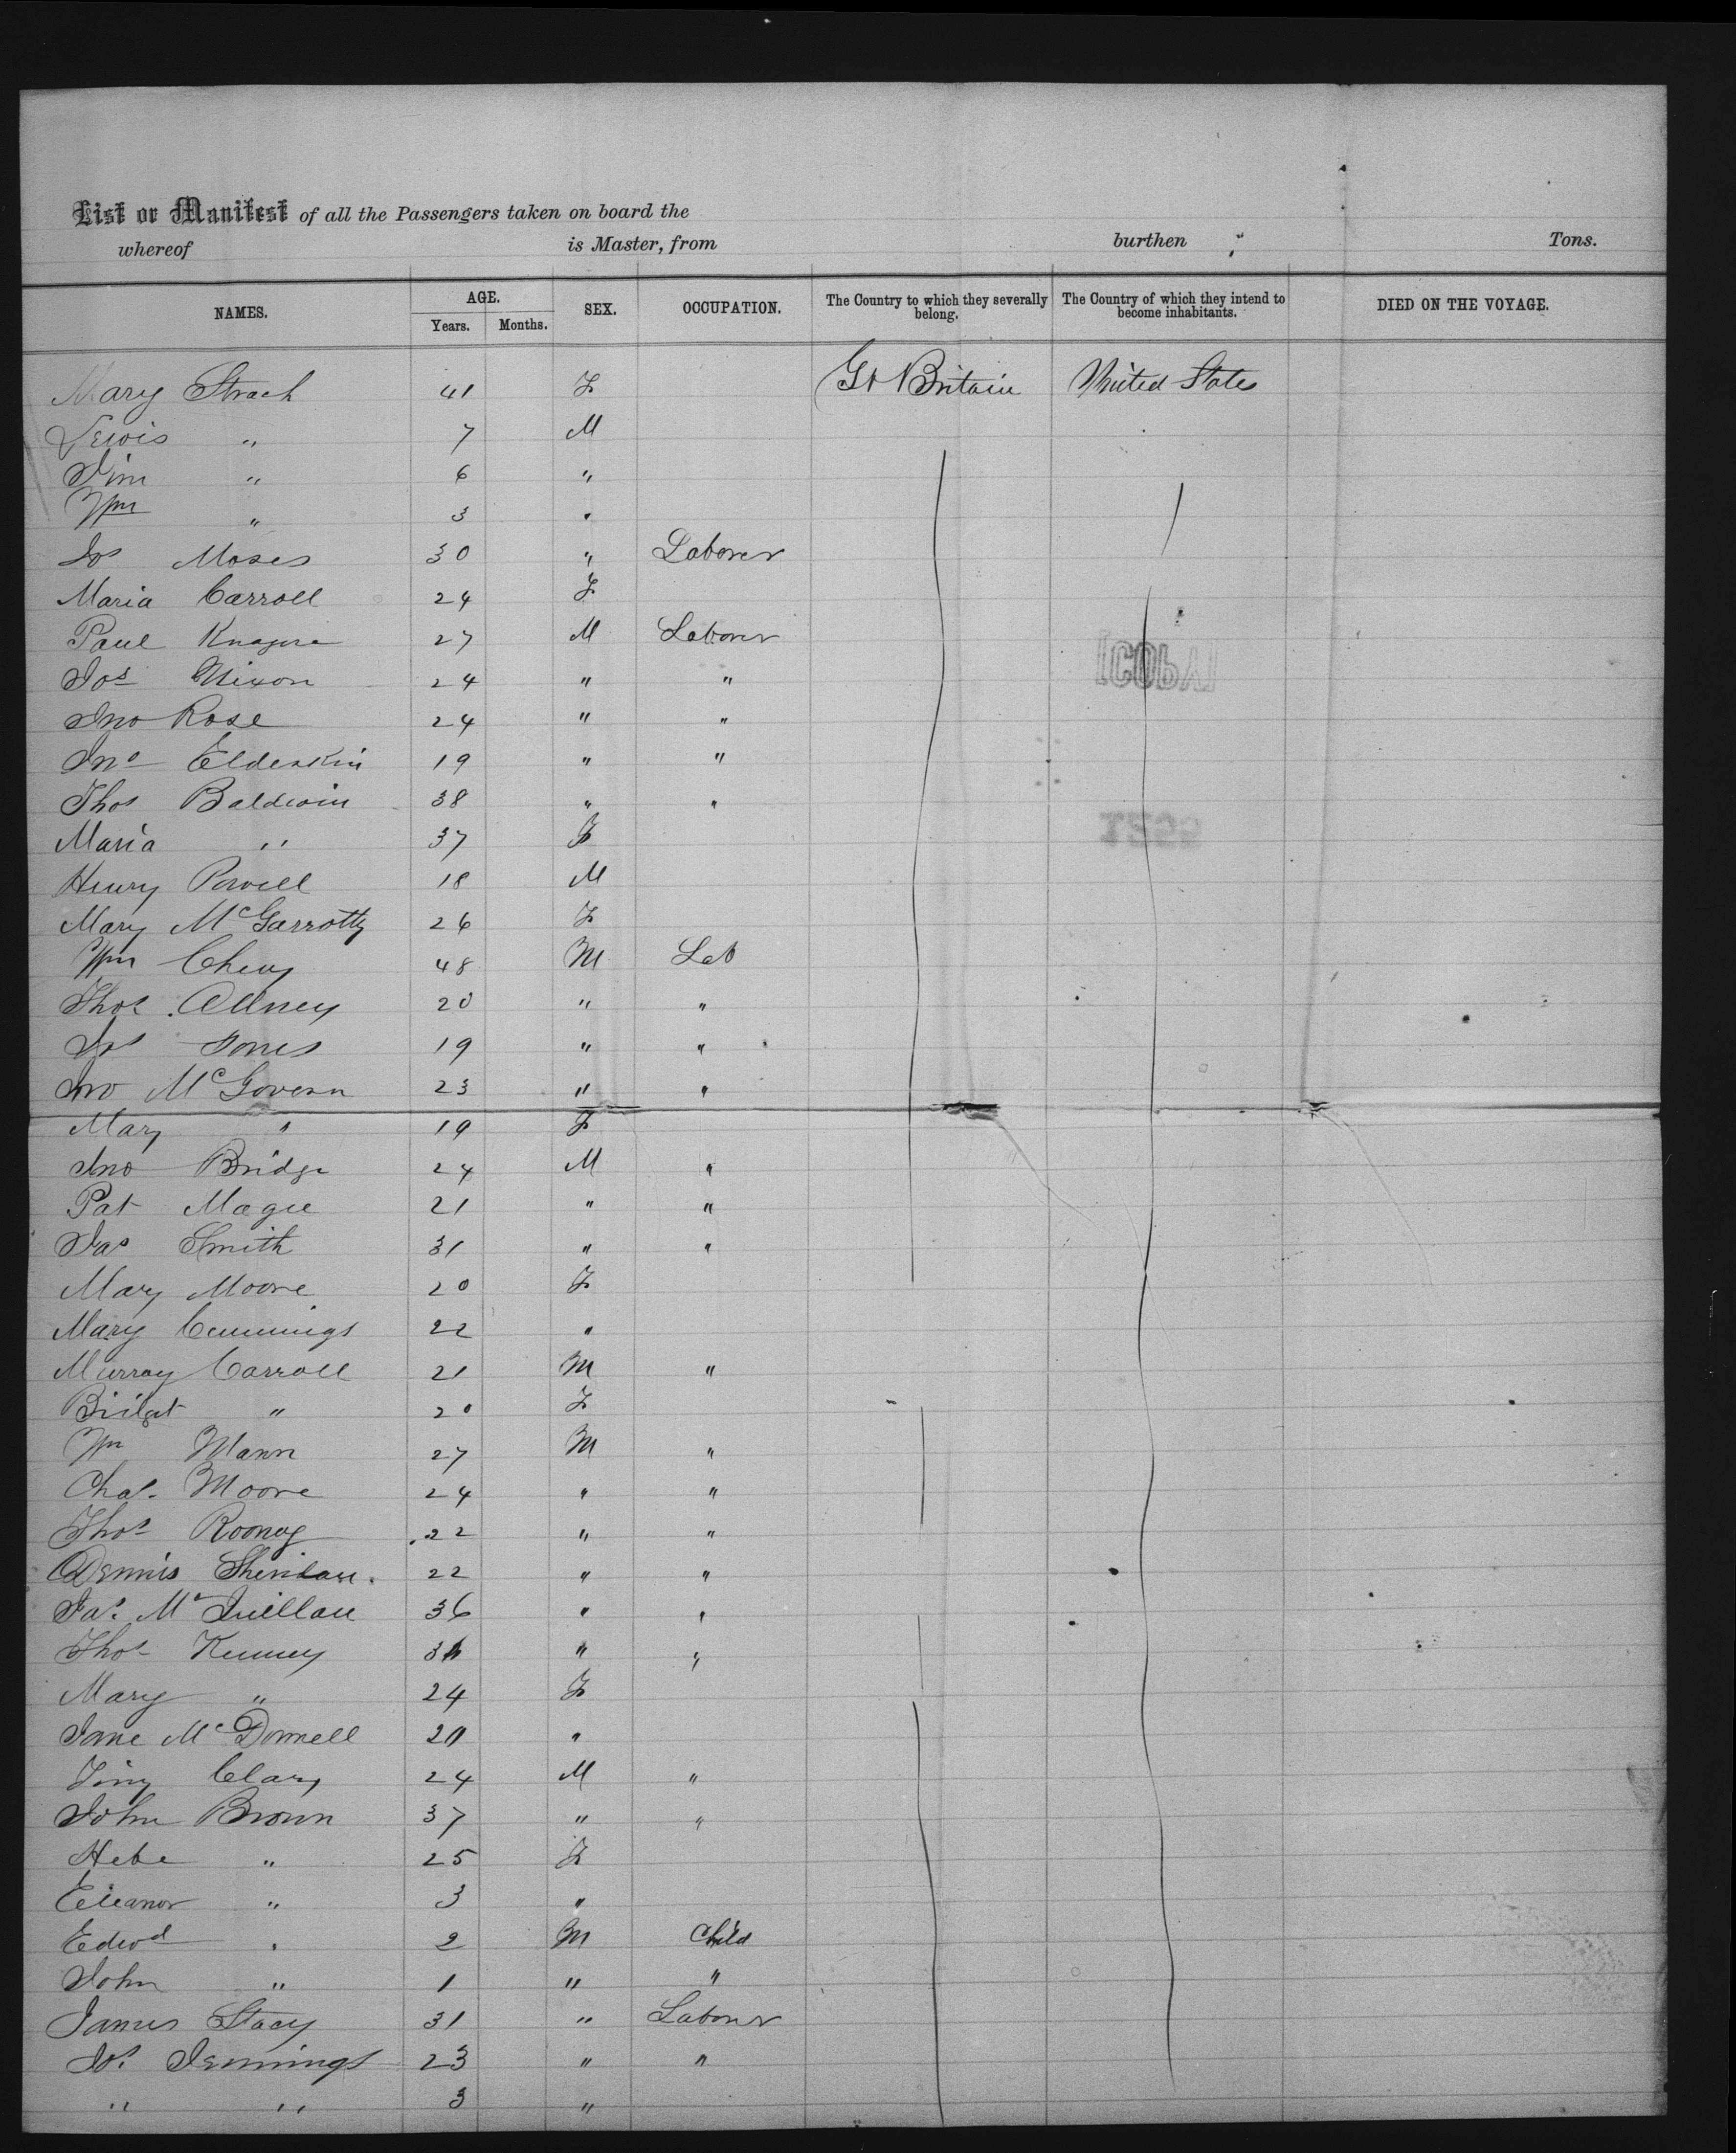 List or Manifest of all the Passengers taken on board the
whereof is Master, from burthen Tons.
NAMES. AGE. Years. Months. SEX. OCCUPATION. The Country to which they severally belong. The Country of which they intend to become inhabitants. DIED ON THE VOYAGE.
Mary Strach 41 F Gt Britain United States
Lewis " 7 M
Jim " 6 "
Wm " 3 "
Jos Moses 30 " Laborer
Maria Carroll 24 F
Paul 27 M Laborer
Jos Nixon 24 " "
Jno Rose 24 " "
Jno Elderkin 19 " "
Thos Baldwin 38 " "
Maria " 37 F
Henry Powell 18 M
Mary McGarrotty 26 F
Wm 48 M Lab
Thos 20 " "
Jos Jones 19 " "
Jno McGovern 23 " "
Mary " 19 F
Jno Bridge 24 M "
Pat Magee 21 " "
Jas Smith 31 " "
Mary Moore 20 F
Mary Cummings 22 "
Murray Carroll 21 M "
" 20 F
Wm Mann 27 M "
Chas. Moore 24 " "
Thos Rooney 22 " "
Dennis Sheridan. 22 " "
Jas. McQuillan 36 " "
Thos Kenney " "
Mary " 24 F
Jane McDonnell "
Clary 24 M "
John Brown 37 " "
Hebe " 25 F
Eleanor " 3 "
Edwd " 2 M Child
John " 1 " "
James Stacy 31 " Laborer
Jos. Jennings 23 " "
" " 3 "